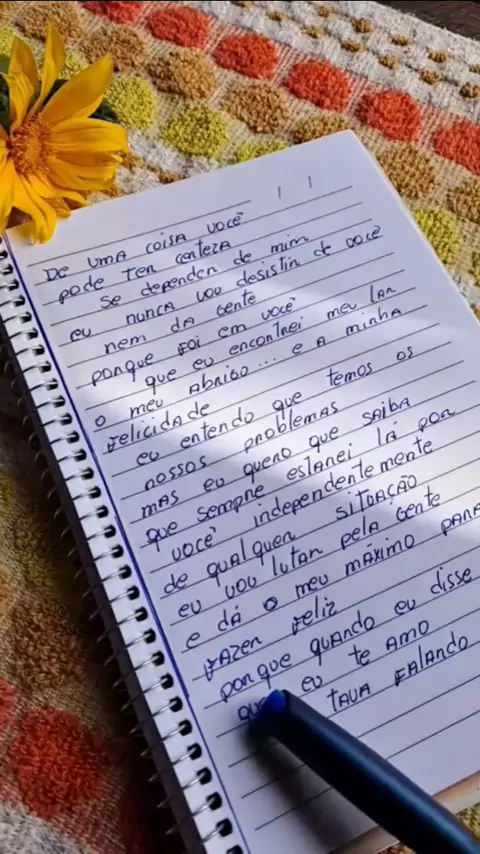 DE UMA COISA VOCÊ
pode TER CERTEZA
SE depender de mim
eu nunca vou desistir de você
nem da gente
porque FOI em você
que eu encontrei meu lar
o meu ABRIGO... e A minha
FELICIDADE
eu entendo que temos os
nossos problemas
mas eu quero que saiba
que sempre estarei lá por
você independentemente
de qualquer SITUAÇÃO
eu vou lutar pela gente
e dá o meu MÁXIMO PARA
FAZER FELIZ
porque quando eu disse
que eu te AMO
TAVA FALANDO